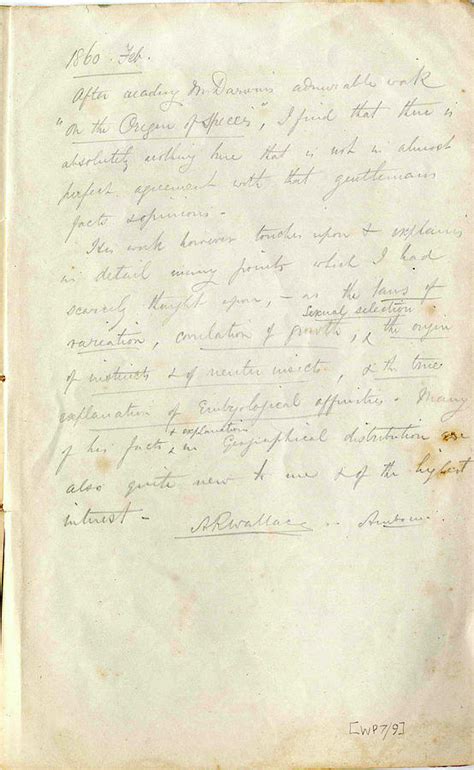 1860. Feb.
After reading Mr Darwin's admirable work
"On the Origin of Species", I find that there is
absolutely nothing here that is not in almost
perfect agreement with that gentlemans
facts & opinions -
His work however touches upon & explains
in detail many points which I had
scarcely thought upon, - as the laws of
variation, correlation of growth, sexual selection, & the origin
of instincts & of neuter insects, & the true
explanation of Embryological affinities. Many
of his facts & explanations in Geographical distribution are
also quite new to me & of the highest
interest -
ARWallace - Amboina.
[WP7/9]